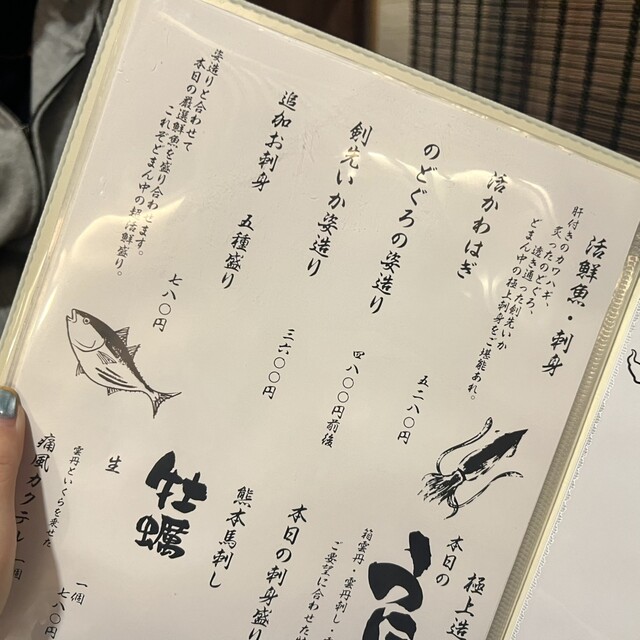 活鮮魚・刺身
肝付きのカワハギ、
炙ったのどぐろ、
透き通った剣先いか
どまん中の極上刺身をご堪能あれ。
活かわはぎ
五二八〇円
のどぐろの姿造り
四八〇〇円前後
剣先いか姿造り
三六〇〇円
追加お刺身 五種盛り
七八〇円
姿造りと合わせて
本日の厳選鮮魚を盛り合わせます。
これぞどまん中の超活鮮盛り。
極上造
本日の
箱雲丹 雲丹刺し
ご要望に合わせた
本日の刺身盛り
熊本馬刺し
牡蠣
生
一個
七八〇
雲丹といくらを乗せた
痛風カクテル 一個